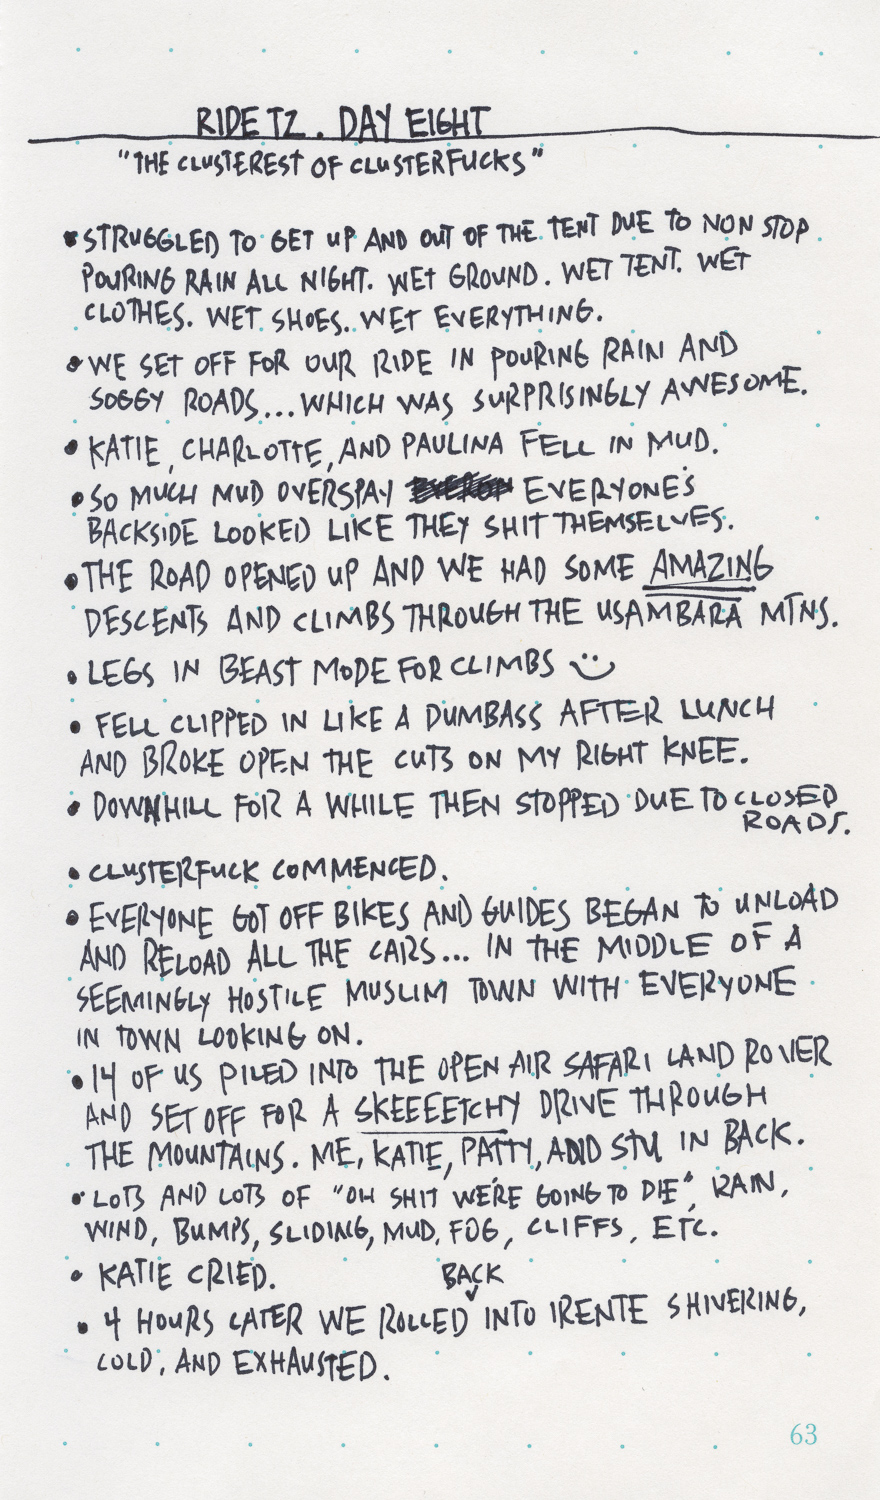 RIDE TZ. DAY EIGHT
"THE CLUSTEREST OF CLUSTERFUCKS"
• STRUGGLED TO GET UP AND OUT OF THE TENT DUE TO NON STOP
POURING RAIN ALL NIGHT. WET GROUND. WET TENT. WET
CLOTHES. WET SHOES. WET EVERYTHING.
• WE SET OFF FOR OUR RIDE IN POURING RAIN AND
SOGGY ROADS... WHICH WAS SURPRISINGLY AWESOME.
• KATIE, CHARLOTTE, AND PAULINA FELL IN MUD.
• SO MUCH MUD OVERSPAY EVERYONE'S
BACKSIDE LOOKED LIKE THEY SHIT THEMSELVES.
• THE ROAD OPENED UP AND WE HAD SOME AMAZING
DESCENTS AND CLIMBS THROUGH THE USAMBARA MTNS.
• LEGS IN BEAST MODE FOR CLIMBS
• FELL CLIPPED IN LIKE A DUMBASS AFTER LUNCH
AND BROKE OPEN THE CUTS ON MY RIGHT KNEE.
• DOWNHILL FOR A WHILE THEN STOPPED DUE TO CLOSED
ROADS.
• CLUSTERFUCK COMMENCED.
• EVERYONE GOT OFF BIKES AND GUIDES BEGAN TO UNLOAD
AND RELOAD ALL THE CARS... IN THE MIDDLE OF A
SEEMINGLY HOSTILE MUSLIM TOWN WITH EVERYONE
IN TOWN LOOKING ON.
• 14 OF US PILED INTO THE OPEN AIR SAFARI LAND ROVER
AND SET OFF FOR A SKEEEETCHY DRIVE THROUGH
THE MOUNTAINS. ME, KATIE, PATTY, AND STU IN BACK.
• LOTS AND LOTS OF "OH SHIT WE'RE GOING TO DIE", RAIN,
WIND, BUMPS, SLIDING, MUD, FOG, CLIFFS, ETC.
• KATIE CRIED.
BACK
• 4 HOURS LATER WE ROLLED INTO IRENTE SHIVERING,
COLD, AND EXHAUSTED.
63